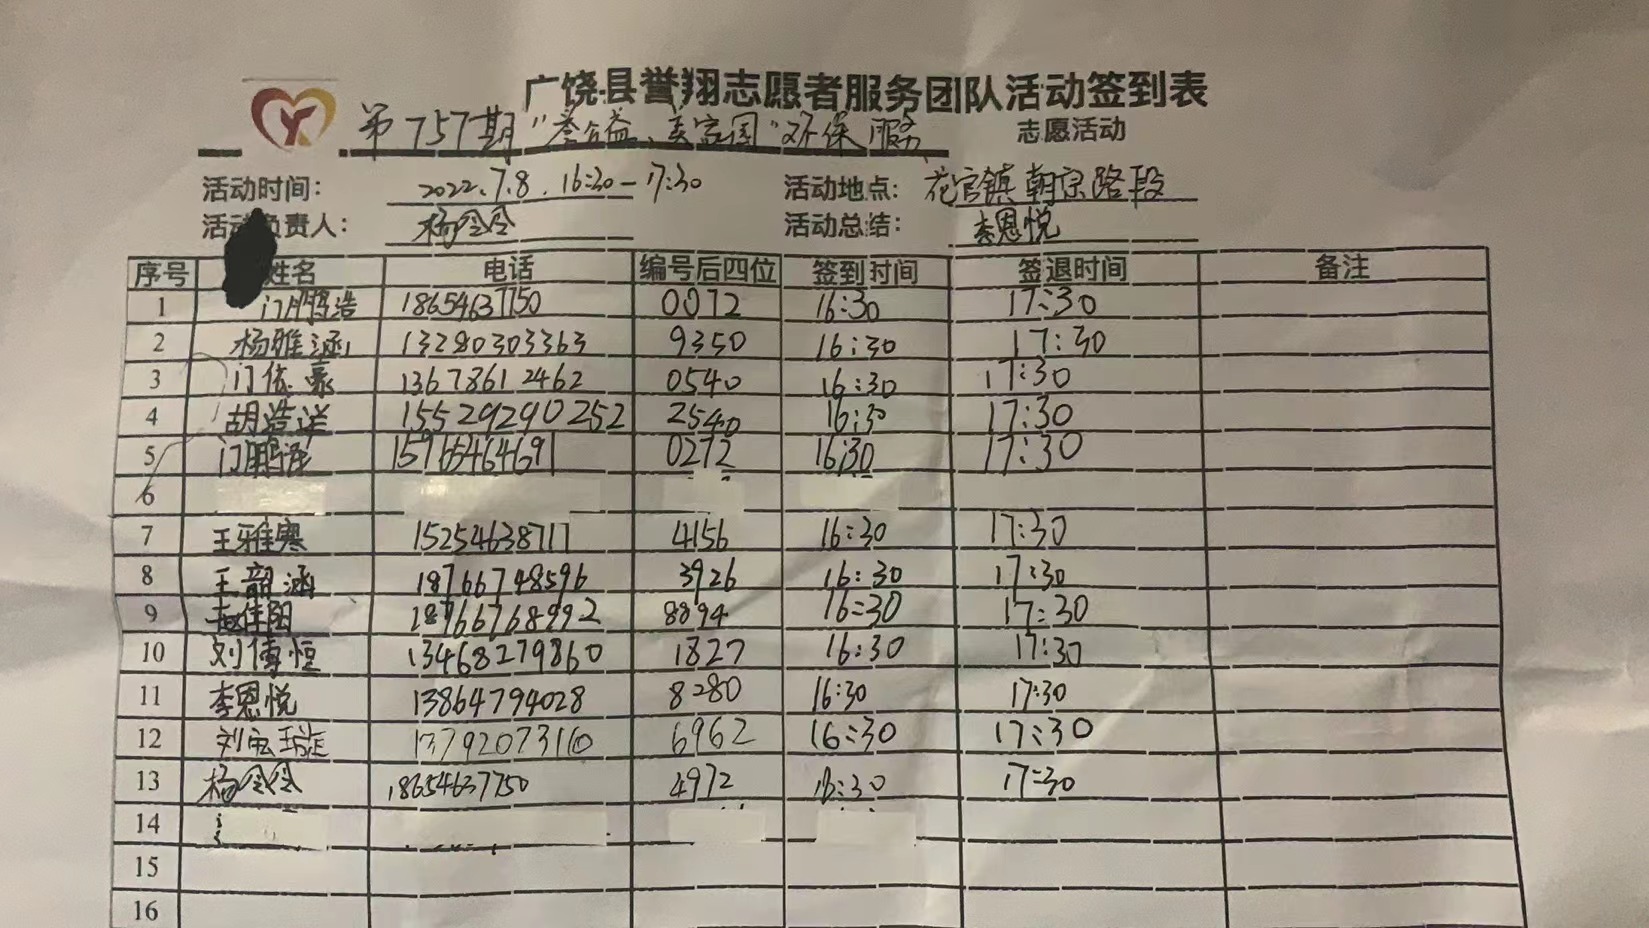 广饶县誉翔志愿者服务团队活动签到表
第757期"誉公益、美家园"环保服务 志愿活动
活动时间: 2022.7.8.16:30-17:30 活动地点: 花官镇朝宗路段
活动负责人: 杨令令 活动总结: 李恩悦
序号 姓名 电话 编号后四位 签到时间 签退时间 备注
1 门鹏浩 18654637750 0072 16:30 17:30
2 杨雅涵 13280303363 9350 16:30 17:30
3 门依豪 13678612462 0540 16:30 17:30
4 胡浩洋 15529290252 2540 16:30 17:30
5 门鹏泽 15965464691 0272 16:30 17:30
6
7 王雅寒 15254638711 4156 16:30 17:30
8 王韵涵 18766748596 3926 16:30 17:30
9 赵佳阳 18766768992 8894 16:30 17:30
10 刘博恒 13468279860 1827 16:30 17:30
11 李恩悦 13864794028 8280 16:30 17:30
12 刘宏璇 13792073110 6962 16:30 17:30
13 杨令令 18654637750 4972 16:30 17:30
14
15
16